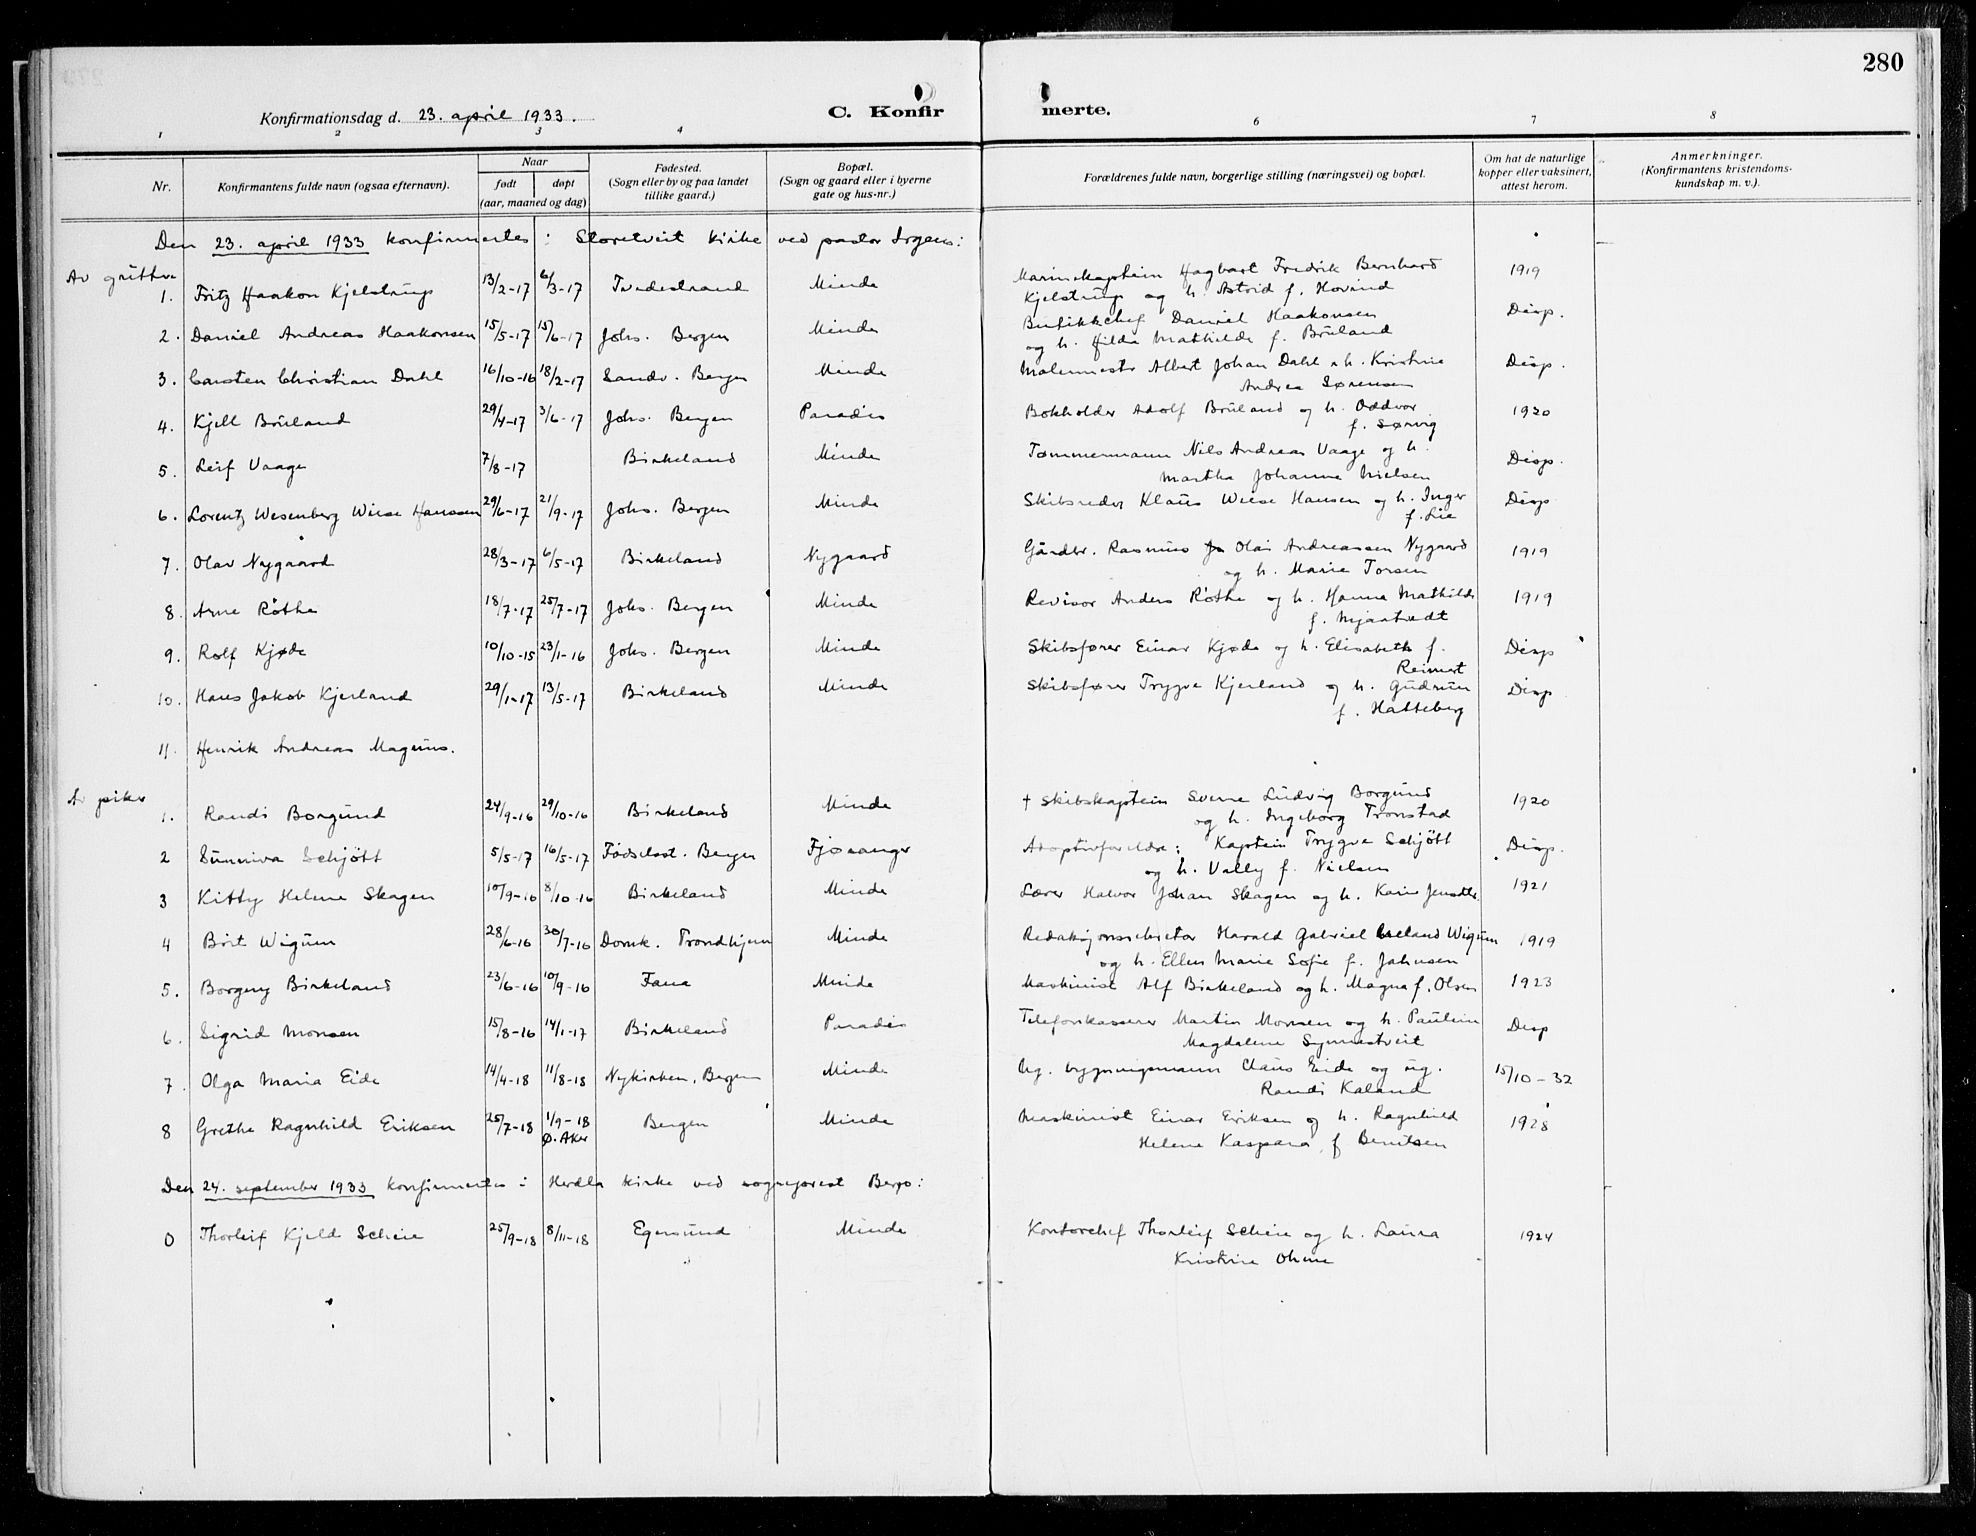 280
Konfirmationsdag d. 23. april 1933. C. Konfirmerte.
1 2 3 4 6 7 8
Nr. Konfirmantens fulde navn (ogsaa efternavn). Naar født døpt (aar, maaned og dag) Fødested. (Sogn eller by og paa landet tillike gaard.) Bopæl. (Sogn og gaard eller i byerne gate og hus-nr.) Forældrenes fulde navn, borgerlige stilling (næringsvei) og bopæl. Om hat de naturlige kopper eller vaksinert, attest herom. Anmerkninger. (Konfirmantens kristendomskundskap m. v.).
Den 23. april 1933 konfirmertes i Storetveit kirke ved pastor Irgens:
Av gutter
1. Fritz Haakon Kjelstrup 13/2-17 6/3-17 Tvedestrand Minde Marinekaptein Hagbart Fredrik Bernhard 1919
Kjelstrup og h. Astrid f. Hovind
2. Daniel Andreas Haakonsen 15/5-17 15/6-17 Johs. Bergen Minde Butikkchef Daniel Haakonsen Disp.
og h. Hilda Mathilde f. Brüland
3. Carsten Christian Dahl 16/10-16 18/2-17 Sandv. Bergen Minde Malermester Albert Johan Dahl o h. Kristine Disp.
Andrea Sørensen
4. Kjell Brüland 29/4-17 3/6-17 Johs. Bergen Paradis Bokholder Adolf Brüland og h. Oddvor 1920
f. Sørvig
5. Leif Vaage 7/8-17 Birkeland Minde Tømmermann Nils Andreas Vaage og h. Disp.
Martha Johanne Nielsen
6. Lorentz Wesenberg Wiese Hanssen 29/6-17 21/9-17 Johs. Bergen Minde Skibsreder Klaus Wiese Hansen og h. Inger Disp
f. Lie
7. Olav Nygaard 28/3-17 6/5-17 Birkeland Nygaard Gårdbr. Rasmus Olai Andreassen Nygaard 1919
og h. Marie Torsen
8. Arne Röthe 18/7-17 25/7-17 Johs. Bergen Minde Revisor Anders Röthe og h. Hanna Mathilde 1919
f. Mjaatvedt
9. Rolf Kjøde 10/10-15 23/1-16 Johs. Bergen Minde Skibsfører Einar Kjøde og h. Elisabeth f. Disp
Reimert
10. Hans Jakob Kjerland 29/1-17 13/5-17 Birkeland Minde Skibsfører Trygve Kjerland og h. Gudrun Disp
f. Hatteberg
11. Henrik Andreas Magnus.
Av piker
1. Randi Borgund 24/9-16 29/10-16 Birkeland Minde † Skibskaptein Sverre Ludvig Borgund 1920
og h. Ingeborg Tronstad
2 Sunniva Schjött 5/5-17 16/5-17 Fødselsst. Bergen Fjøsanger Adoptivforeldre: Kaptein Trygve Schjött Disp.
og h. Vally f. Nielsen
3 Kitty Helene Skagen 10/9-16 8/10-16 Birkeland Minde Lærer Halvor Johan Skagen og h. Karin 1921
4 Brit Wigum 28/6-16 30/7-16 Domk. Trondhjem Minde Redaksjonssekretær Harald Gabriel Wigum 1919
og h. Ellen Marie Sofie f. Johnsen
5. Borgny Birkeland 23/6-16 10/9-16 Fana Minde Maskinist Alf Birkeland og h. Magna f. Olsen 1923
6. Sigrid Monsen 15/8-16 14/1-17 Birkeland Paradis Telefonkasserer Martin Monsen og h. Pauline Disp
Magdalene Synnestveit
7. Olga Maria Eide 14/4-18 11/8-18 Nykirken, Bergen Minde Ug. bygningsmann Claus Eide og ug. 15/10-32
Randi Kaland
8 Grethe Ragnhild Eriksen 25/7-18 1/9-18 Bergen Minde Maskinist Einar Eriksen og h. Ragnhild 1928
Ø. Aker Helene Kaspara f Berntsen
Den 24. september 1933 konfirmertes i Herdla kirke ved sogneprest Berg:
0 Thorleif Kjeld Scheie 25/9-18 8/11-18 Egersund Minde Kontorchef Thorleif Scheie og h. Laura 1924
Kristine Ohme